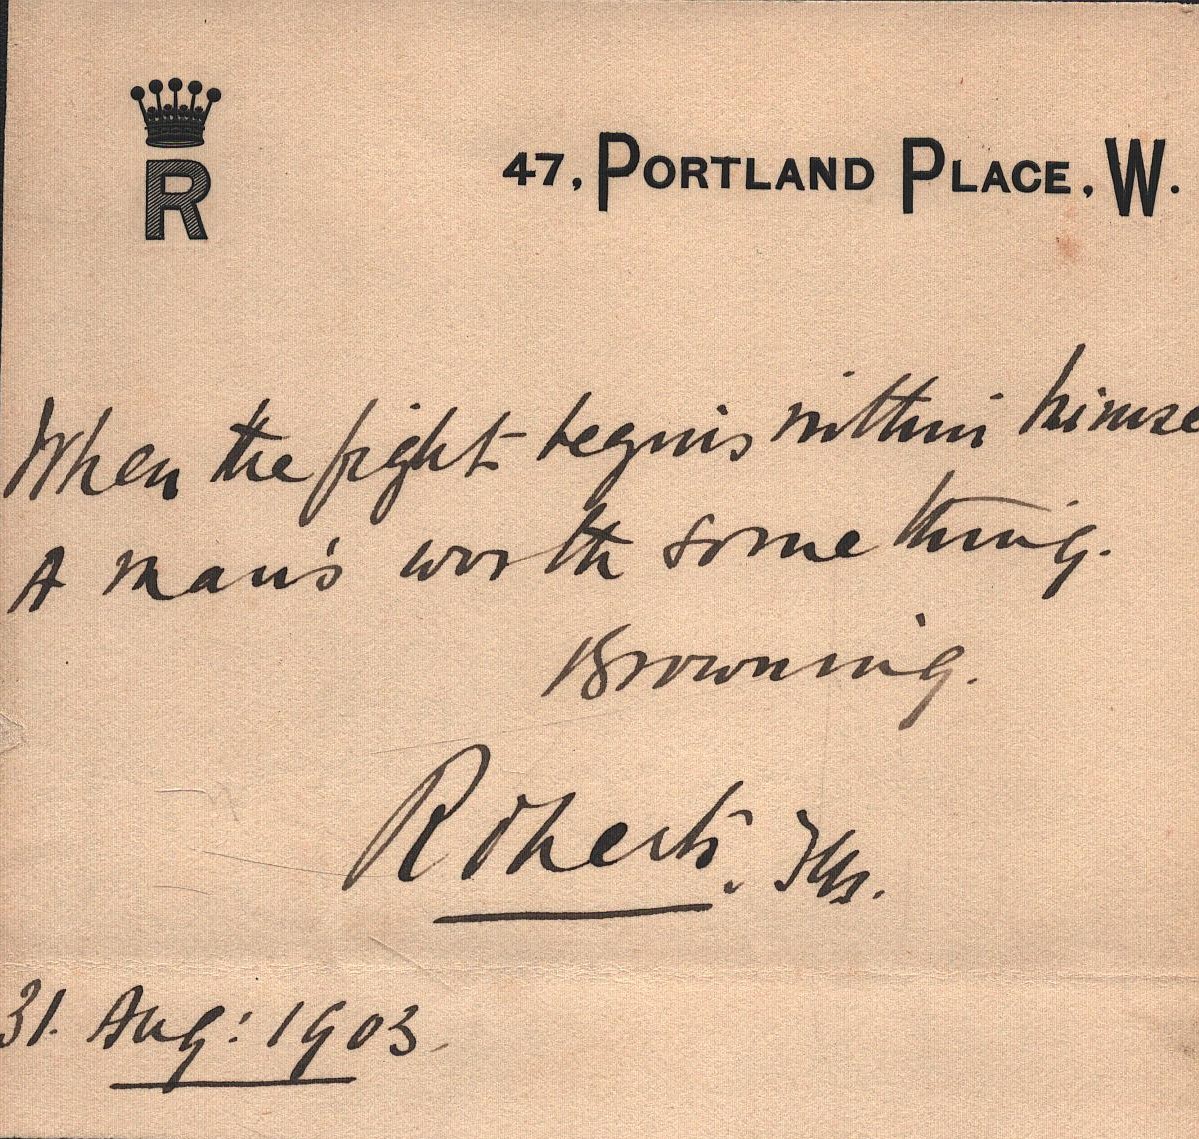 R
47, PORTLAND PLACE, W.
When the fight begins within himse
A man's worth something.
Browning.
Roberts, FM.
31. Aug: 1903.